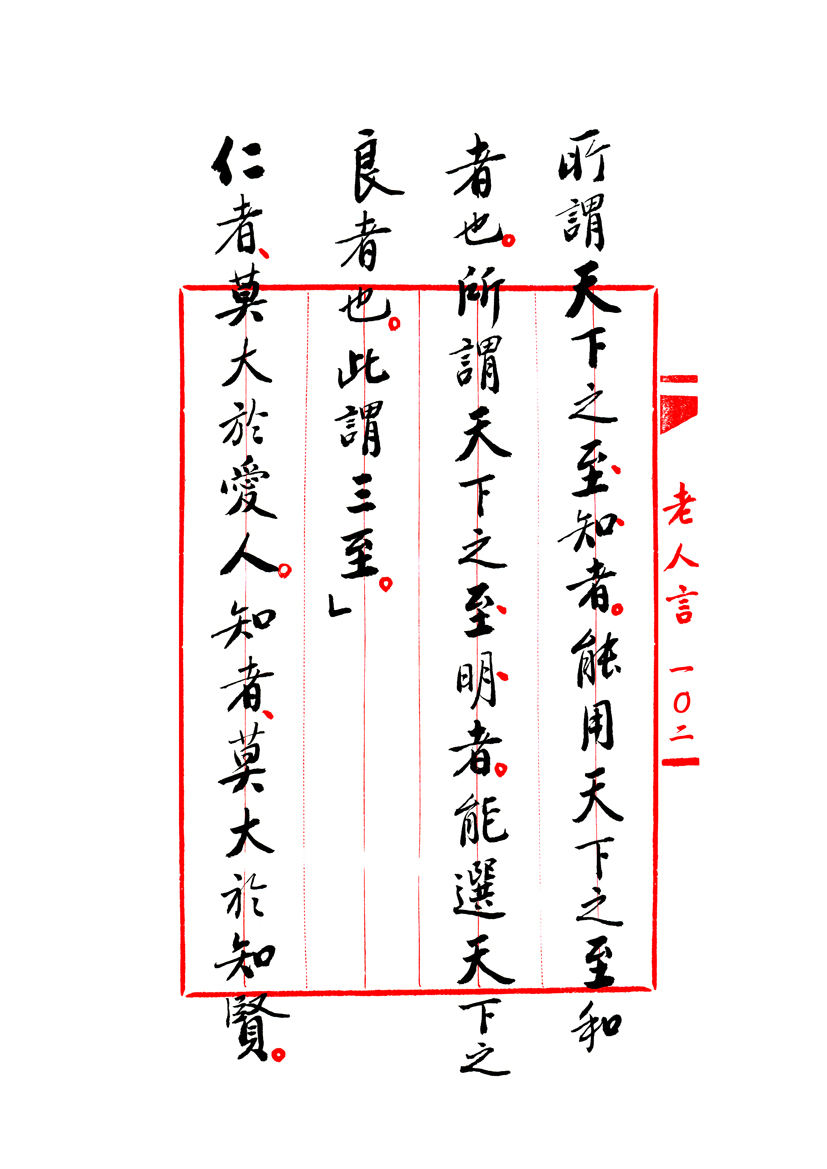 所謂天下之至、知、者。能用天下之至和
者也。所謂天下之至、明、者。能選天下之
良者也。此謂三至。」
仁者、莫大於愛人。知者、莫大於知賢。
老人言 一〇二